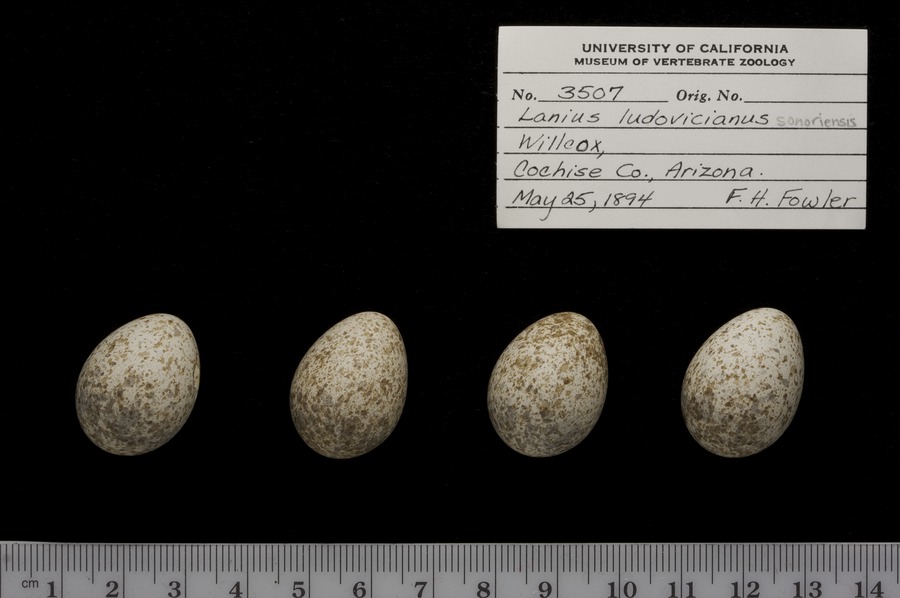 UNIVERSITY OF CALIFORNIA
MUSEUM OF VERTEBRATE ZOOLOGY
No. 3507 Orig. No.
Lanius ludovicianus sonoriensis
Willcox,
Cochise Co., Arizona.
May 25, 1894 F. H. Fowler
cm 1 2 3 4 5 6 7 8 9 10 11 12 13 14